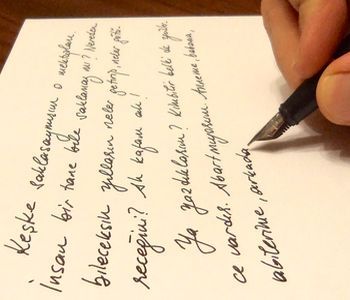 Keşke saklasaymışım o mektupları.
İnsan bir tane bile saklamaz mı? Nereden
bileceksin yılların neler getirip, neler götü-
receğini? Ah kafam ah!
Ya yazdıkların? Kimbilir belki de yüzler-
ce vardır. Abartmıyorum. Anneme, babama,
abilerime, arkada